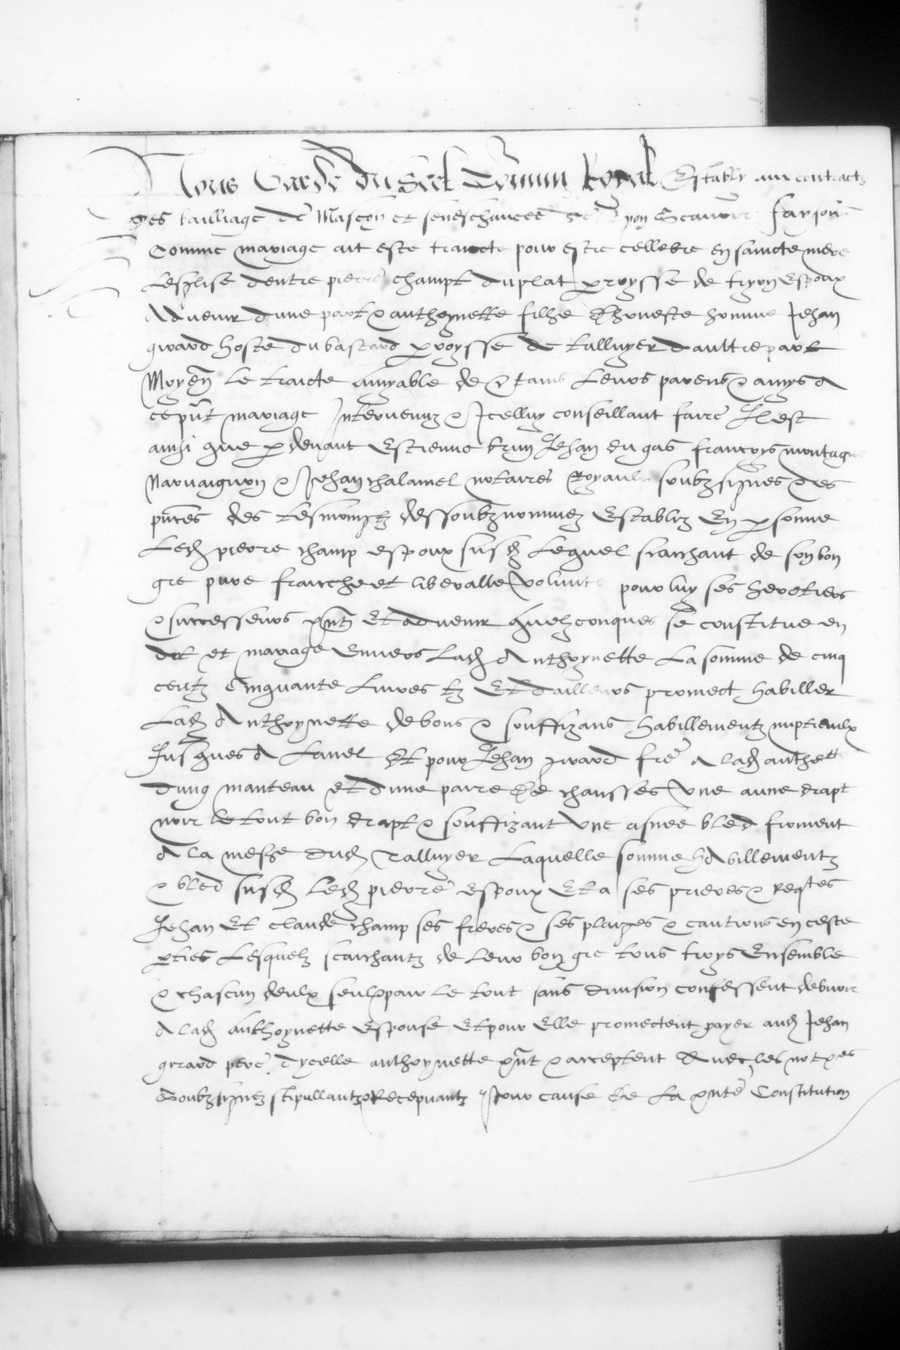 Nous Garde du Seel Commun Royal Estably aux contractz
des bailliage de Mascon et seneschaucee de Lyon Scavoir faisons
Comme mariage ait este traicte pour estre cellebre en saincte mere
Leglise dentre pierre champt duplat parroysse de espoux
Advenir dune part & anthoynette filhe Dhoneste homme Jehan
girard hoste du bastard parroysse de talluyer daultre part
Moyen le traicte amyable de certains leurs parens & amys a
ce pnt mariage Intervenuz & Icelluy conseillant faire Il est
ainsi que par devant Estienne brun Jehan dugas francoys montagne
& Jehan chalamel notaires Royaulx soubzsignes & es
pnces des tesmoingtz dessoubz nommez Establiz En personne
Led pierre champ espoux susd Lequel scaichant de son bon
gre pure franche et liberalle volunte pour luy ses heretiers
& successeurs pnt Et advenir quelzconques se constitue en
dot et mariage Envers lad Anthoynette La somme de cinq
centz Cinquante Livres tz Et dailleurs promect habiller
Lad Anthoynette de bons & souffizans habillementz nuptiaulx
Jusques a Lanel Et pour Jehan girard frere a lad anthette
dung manteau et dune paire de chausses Une aune drapt
noir le tout bon drapt & souffizant Une asnee bled froment
A la mesure dud Talluyer Laquelle somme habillementz
& bled susd led pierre Espoux Et a ses prieres & reqstes
Jehan Et claude champ ses freres & ses pleiges & cautions en ceste
parties Lesquelz scaichantz de leur bon gre tous troys Ensemble
& chascun deulx seul & pour le tout sans division confessent debvoir
A lad anthoynette Espouse Et pour Elle promectent payer aud Jehan
girard pere dycelle anthoynette pnt & acceptent Avec les notres
Soubzsignez stipullantz & Recepvantz Pour cause de La pnte Constitution